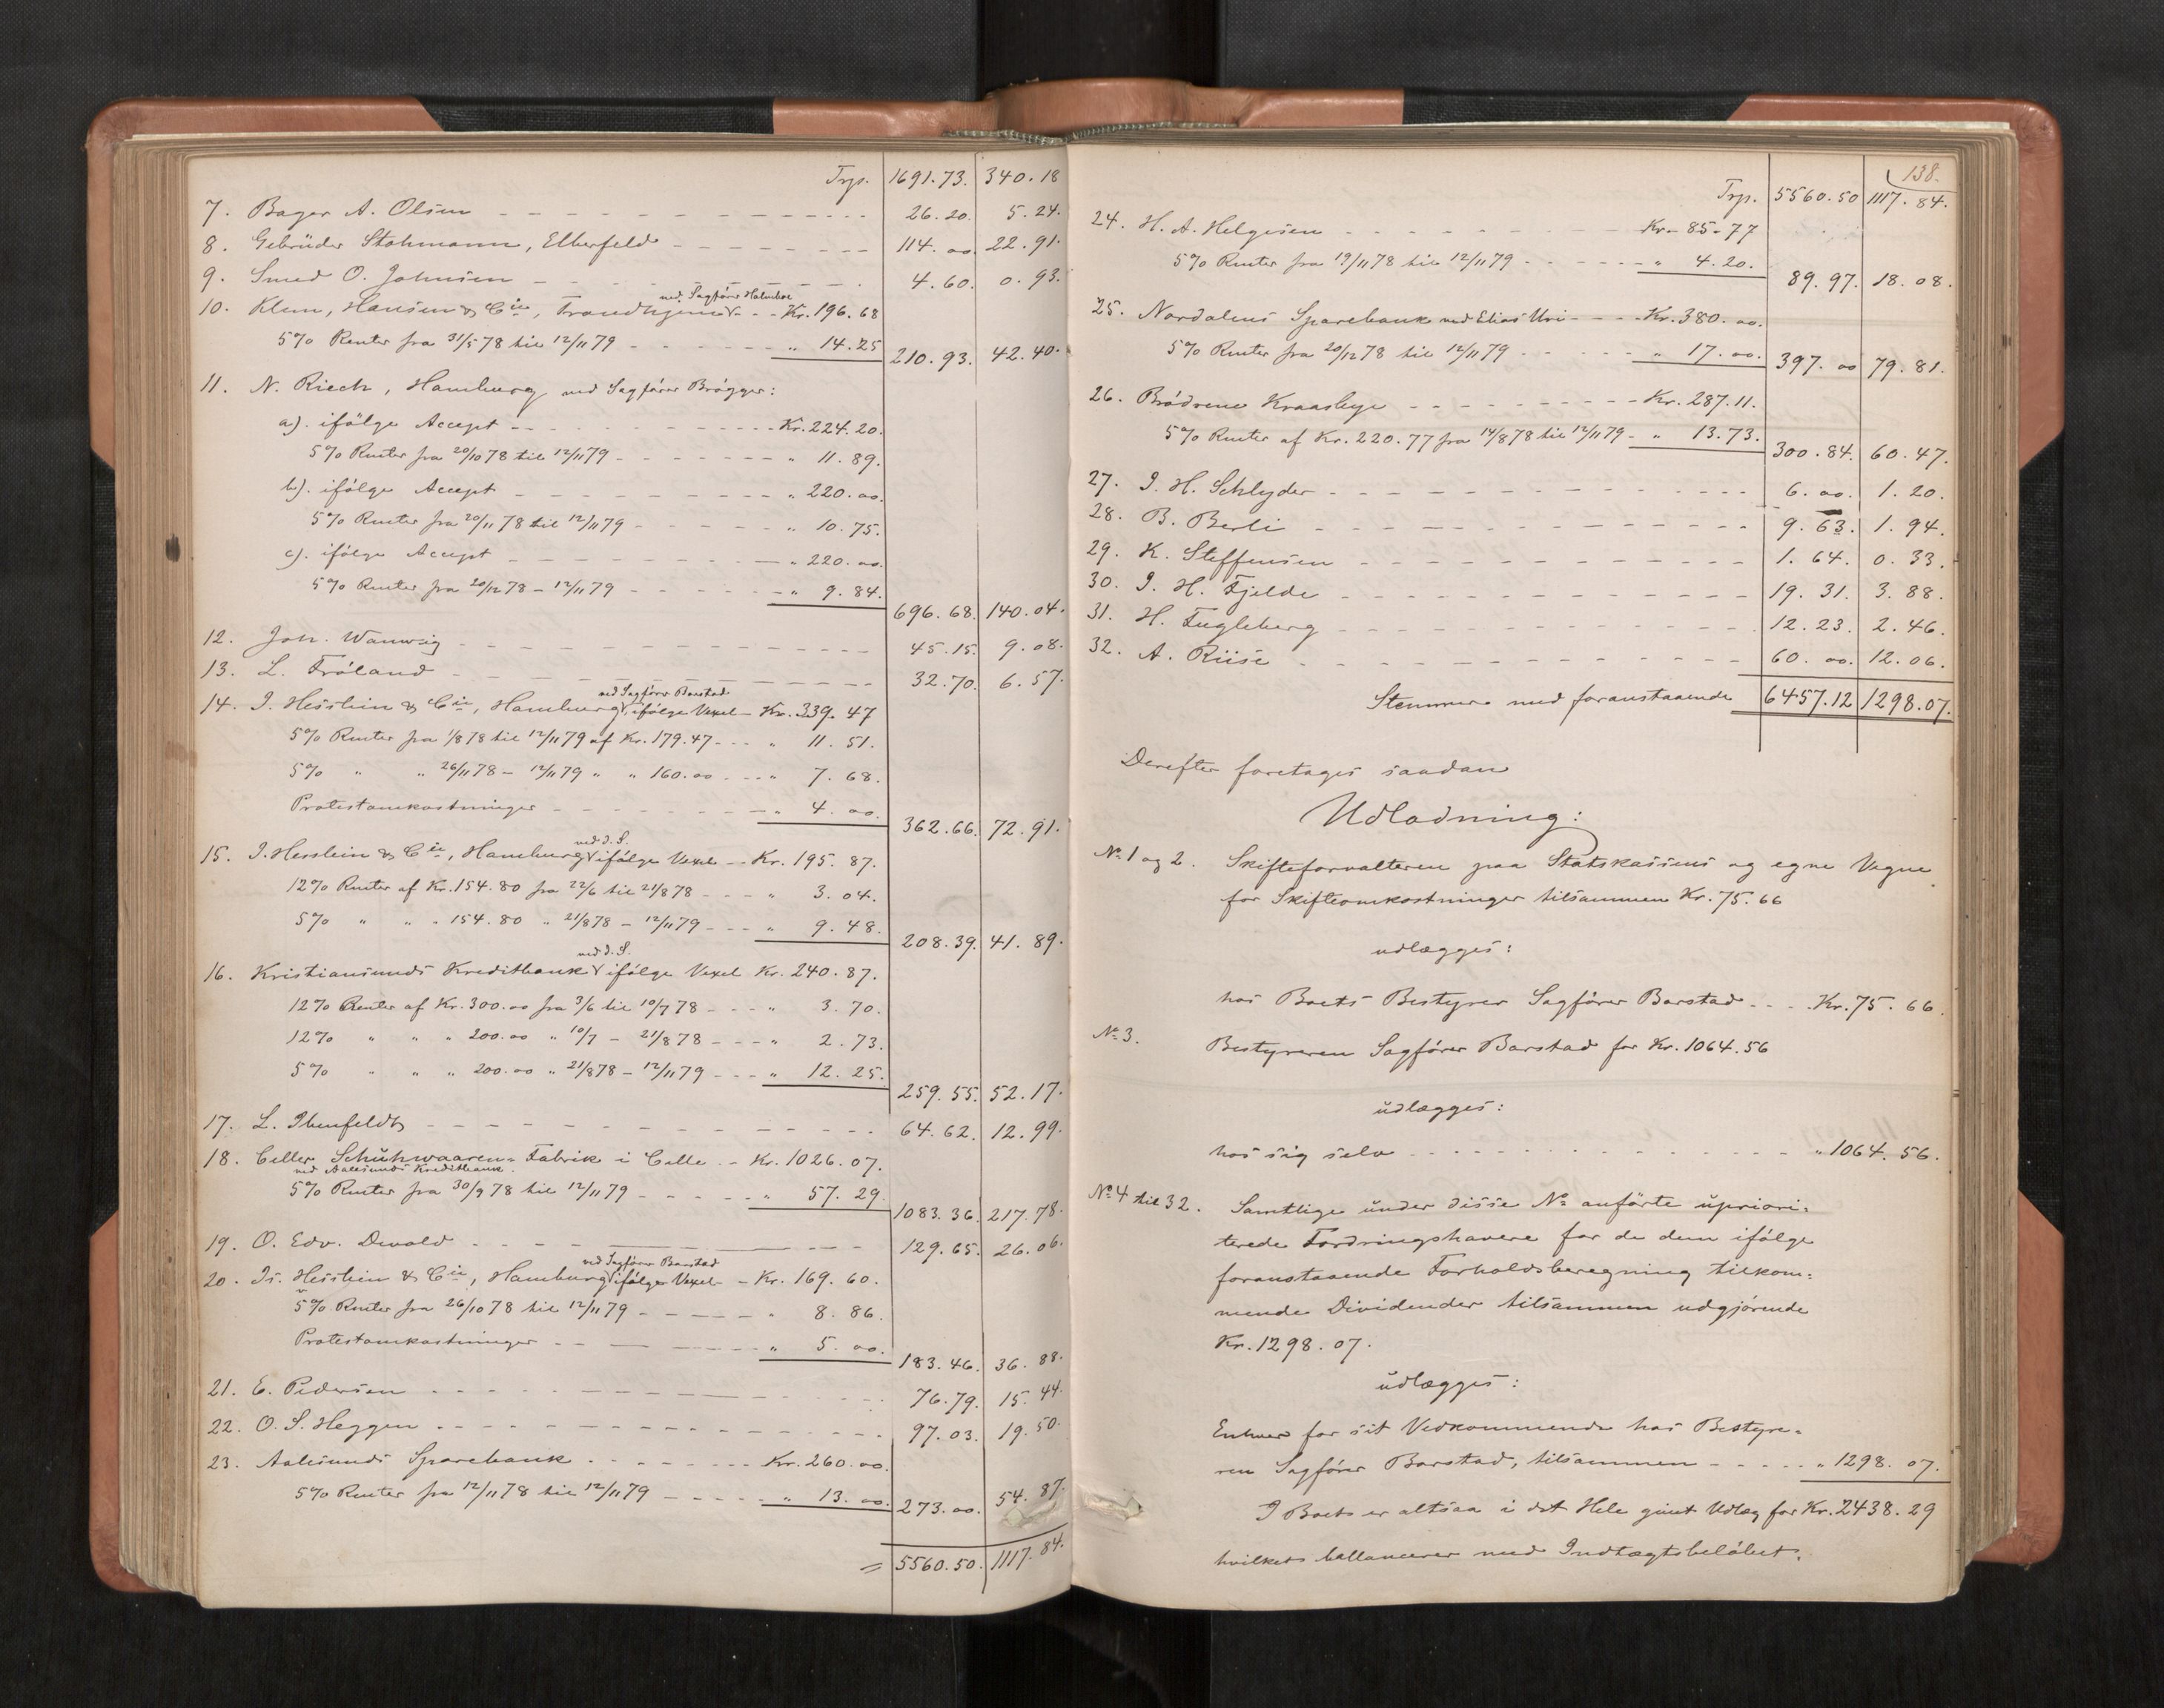 Trp. 1691.73. 340.18
7. Bager A. Olsen 26.20. 5.24.
8. Gebrüder Stohmann, Elberfeld 114.00 22.91.
9. Smed O. Johnsen 4.60. 0.93.
ved Sagfører
10. Klem, Hansen & Cie, Trondhjem Kr. 196.68
5% Renter fra 31/5 78 til 12/11 79 " 14.25 210.93. 42.40.
11. N. Riech, Hamburg, ved Sagfører Brøgger:
a). ifølge Accept Kr. 224.20.
5% Renter fra 20/10 78 til 12/11 79 " 11.89.
b). ifølge Accept " 220.00.
5% Renter fra 20/11 78 til 12/11 79 " 10.75.
c). ifølge Accept " 220.00.
5% Renter fra 20/12 78 – 12/11 79 " 9.84. 696.68. 140.04.
12. Joh. Wanvig 45.15. 9.08.
13. L. Frøland 32.70. 6.57.
ved Sagfører Barstad
14. I. Hesslein & Cie, Hamburg, ifølge Vexel Kr. 339.47
5% Renter fra 1/8 78 til 12/11 79 af Kr. 179.47 " 11.51.
5% " " 26/11 78 – 12/11 79 " " 160.00 " 7.68.
Protestomkostninger " 4.00. 362.66. 72.91.
ved d. S.
15. I. Hesslein & Cie, Hamburg ifølge Vexel Kr. 195.87.
12% Renter af Kr. 154.80 fra 22/6 til 21/8 78 " 3.04.
5% " " " 154.80 " 21/8 78 – 12/11 79 " 9.48. 208.39. 41.89.
ved d. S.
16. Kristiansunds Kreditbank ifølge Vexel Kr. 240.87.
12% Renter af Kr. 300.00 fra 3/6 til 10/7 78 " 3.70.
12% " " " 200.00 " 10/7 – 21/8 78 " 2.73.
5% " " " 200.00 " 21/8 78 – 12/11 79 " 12.25. 259.55. 52.17.
17. L. Ibenfeldt 64.62. 12.99.
18. Celler Schuhwaaren-Fabrik i Celle Kr. 1026.07.
ved Aalesunds Kreditbank.
5% Renter fra 30/9 78 til 12/11 79 " 57.29. 1083.36. 217.78.
19. O. Edv. Devold 129.65. 26.06.
ved Sagfører Barstad
20. Is. Hesslein & Cie, Hamburg ifølge Vexel Kr. 169.60.
5% Renter fra 26/10 78 til 12/11 79 " 8.86.
Protestomkostninger " 5.00. 183.46. 36.88.
21. E. Pedersen 76.79. 15.44.
22. O. S. Heggen 97.03. 19.50.
23. Aalesunds Sparebank Kr. 260.00.
5% Renter fra 12/11 78 til 12/11 79 " 13.00. 273.00. 54.87.
= 5560.50. 1117.84.
138.
Trp. 5560.50 1117.84.
24. H. A. Helgesen Kr. 85.77
5% Renter fra 19/11 78 til 12/11 79 " 4.20. 89.97. 18.08.
25. Nordalens Sparebank ved Elias Uri Kr. 380.00.
5% Renter fra 20/12 78 til 12/11 79 " 17.00. 397.00 79.81.
26. Brødrene Kraasbye Kr. 287.11.
5% Renter af Kr. 220.77 fra 14/8 78 til 12/11 79 " 13.73. 300.84. 60.47.
27. I. H. Schlyder 6.00. 1.20.
28. B. Berli 9.63. 1.94.
29. K. Steffensen 1.64. 0.33.
30. I. H. Fjelde 19.31. 3.88.
31. H. Fugleberg 12.23. 2.46.
32. A. Riise 60.00. 12.06.
Stemmer med foranstaaende 6457.12 1298.07.
Derefter foretages saadan
Udlodning:
No 1 og 2. Skifteforvalteren paa Statskassens og egne Vegne
for Skifteomkostninger tilsammen Kr. 75.66
udlægges:
hos Boets Bestyrer Sagfører Barstad Kr. 75.66.
No 3. Bestyreren Sagfører Barstad for Kr. 1064.56
udlægges:
hos sig selv " 1064.56.
No 4 til 32. Samtlige under disse No anførte upriori-
terede Fordringshavere for de dem ifølge
foranstaaende Forholdsberegning tilkom-
mende Dividender tilsammen udgjørende
Kr. 1298.07.
udlægges:
Enhver for sit Vedkommende hos Bestyre-
ren Sagfører Barstad, tilsammen " 1298.07.
I Boets er altsaa i det Hele givet Udlæg for Kr. 2438.29
hvilket ballancerer med Indtægtsbeløbet.